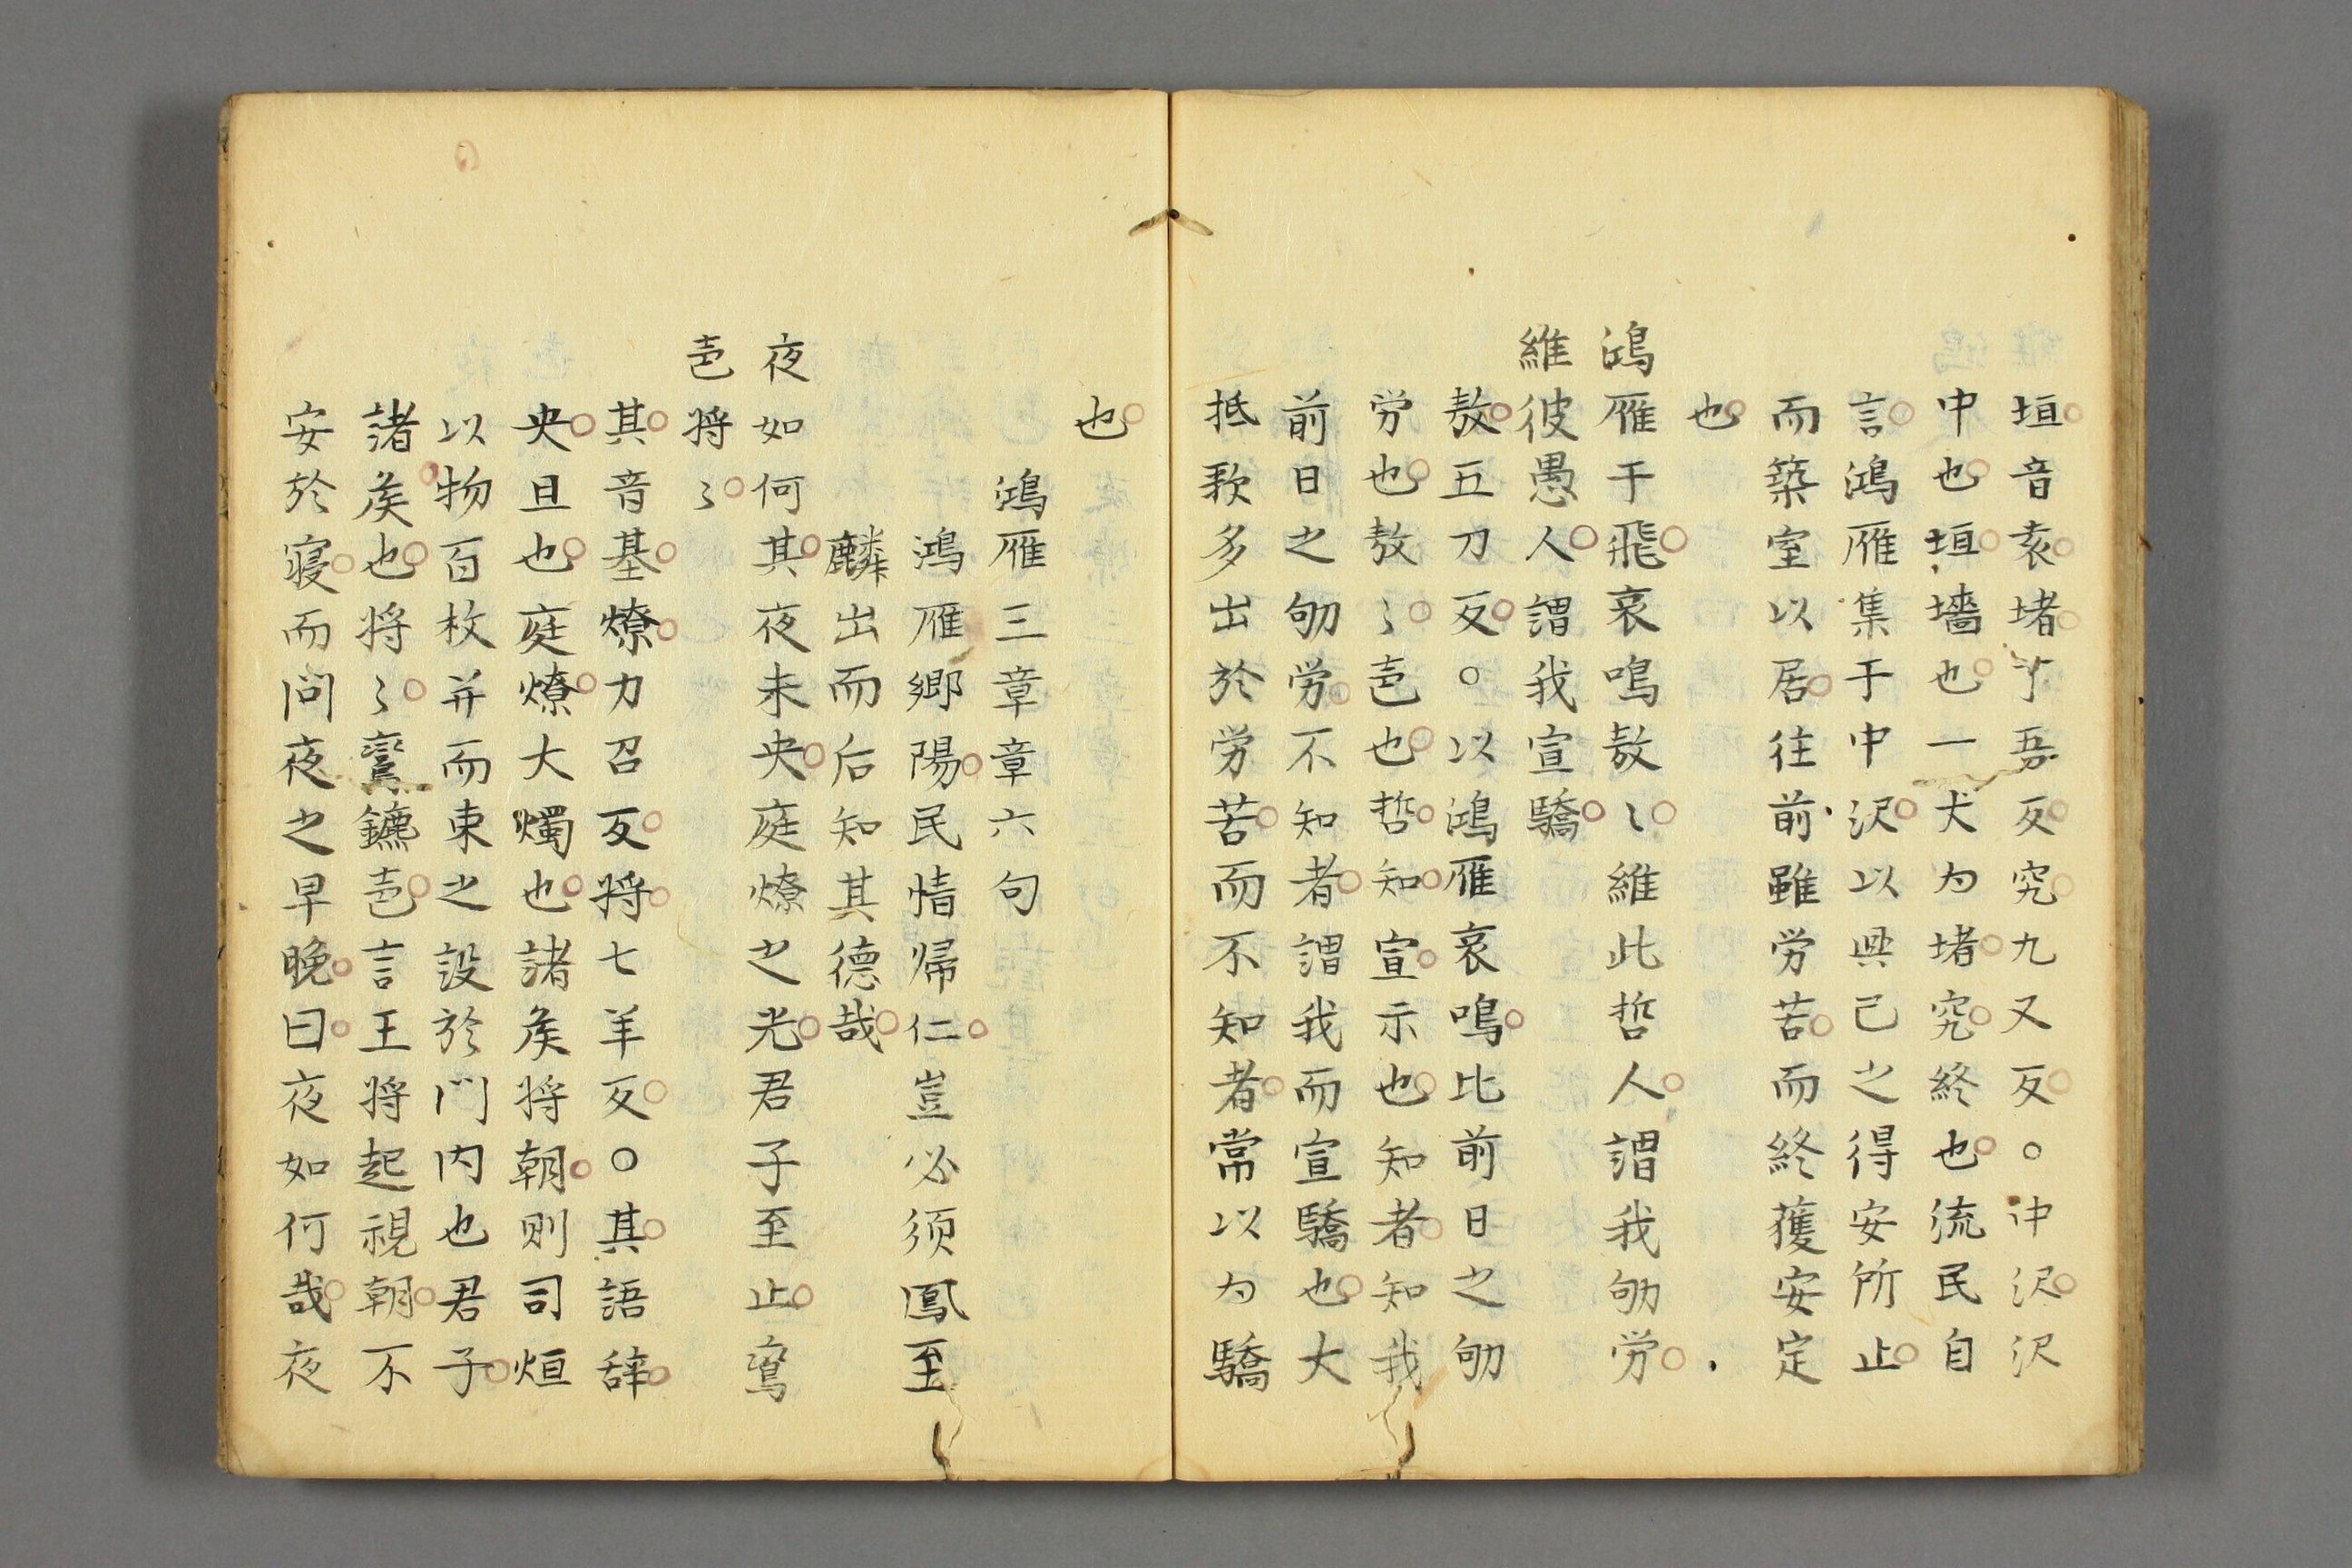 垣音袁堵丁吾反究九又反○中沢沢
中也垣墻也一丈为堵究終也流民自
言鴻雁集于中沢以興己之得安所止
而築室以居往前雖労苦而終獲安定
也
鴻雁于飛哀鳴敖〻維此哲人謂我劬労
維彼愚人謂我宣驕
敖五刀反○以鴻雁哀鳴比前日之劬
労也敖〻壱也哲知宣示也知者知我
前日之劬労不知者謂我而宣驕也大
抵歌多出於労苦而不知者常以为驕
也
鴻雁三章章六句
鴻雁郷陽民情帰仁豈必須鳳至
麟出而后知其德哉
夜如何其夜未央庭燎之光君子至止鸞
壱将〻
其音基燎力召反将七羊反○其語辞
央且也庭燎大燭也諸矦将朝則司烜
以物百枚并而束之設於門内也君子
諸矦也将〻鸞鑣壱言王将起視朝不
安於寝而問夜之早晚曰夜如何哉夜